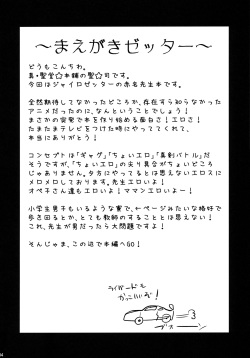 ～まえがきゼッター～
どうもこんちわ。
真・聖堂☆本舗の聖☆司です。
今回はジャイロゼッターの赤名先生本です。
全然期待してなかったどころか、存在すら知らなかった
アニメだったのに、なんということでしょう！
まさかの突発で本を作り始める面白さ！エロさ！
たまたまテレビをつけた時にやっててくれて、
本当にありがとう！
コンセプトは「ギャグ」「ちょいエロ」「真剣バトル」だ
そうですが、「ちょいエロ」の尖り具合がちょいどころ
じゃありません。夕方にやってるとは思えないエロスに
メロメロしております。先生エロいよ！
オペ子さん達もエロいよ！ママンエロいよー！
小学生男子もいるような寮で、←ページみたいな格好で
歩き回るとか、とても教師のすることとは思えない！
これ、先生が男だったら大問題ですよ！
そんじゃま、この辺で本編へGO！
ライバードも
かっこいいぞ！
ブオーン